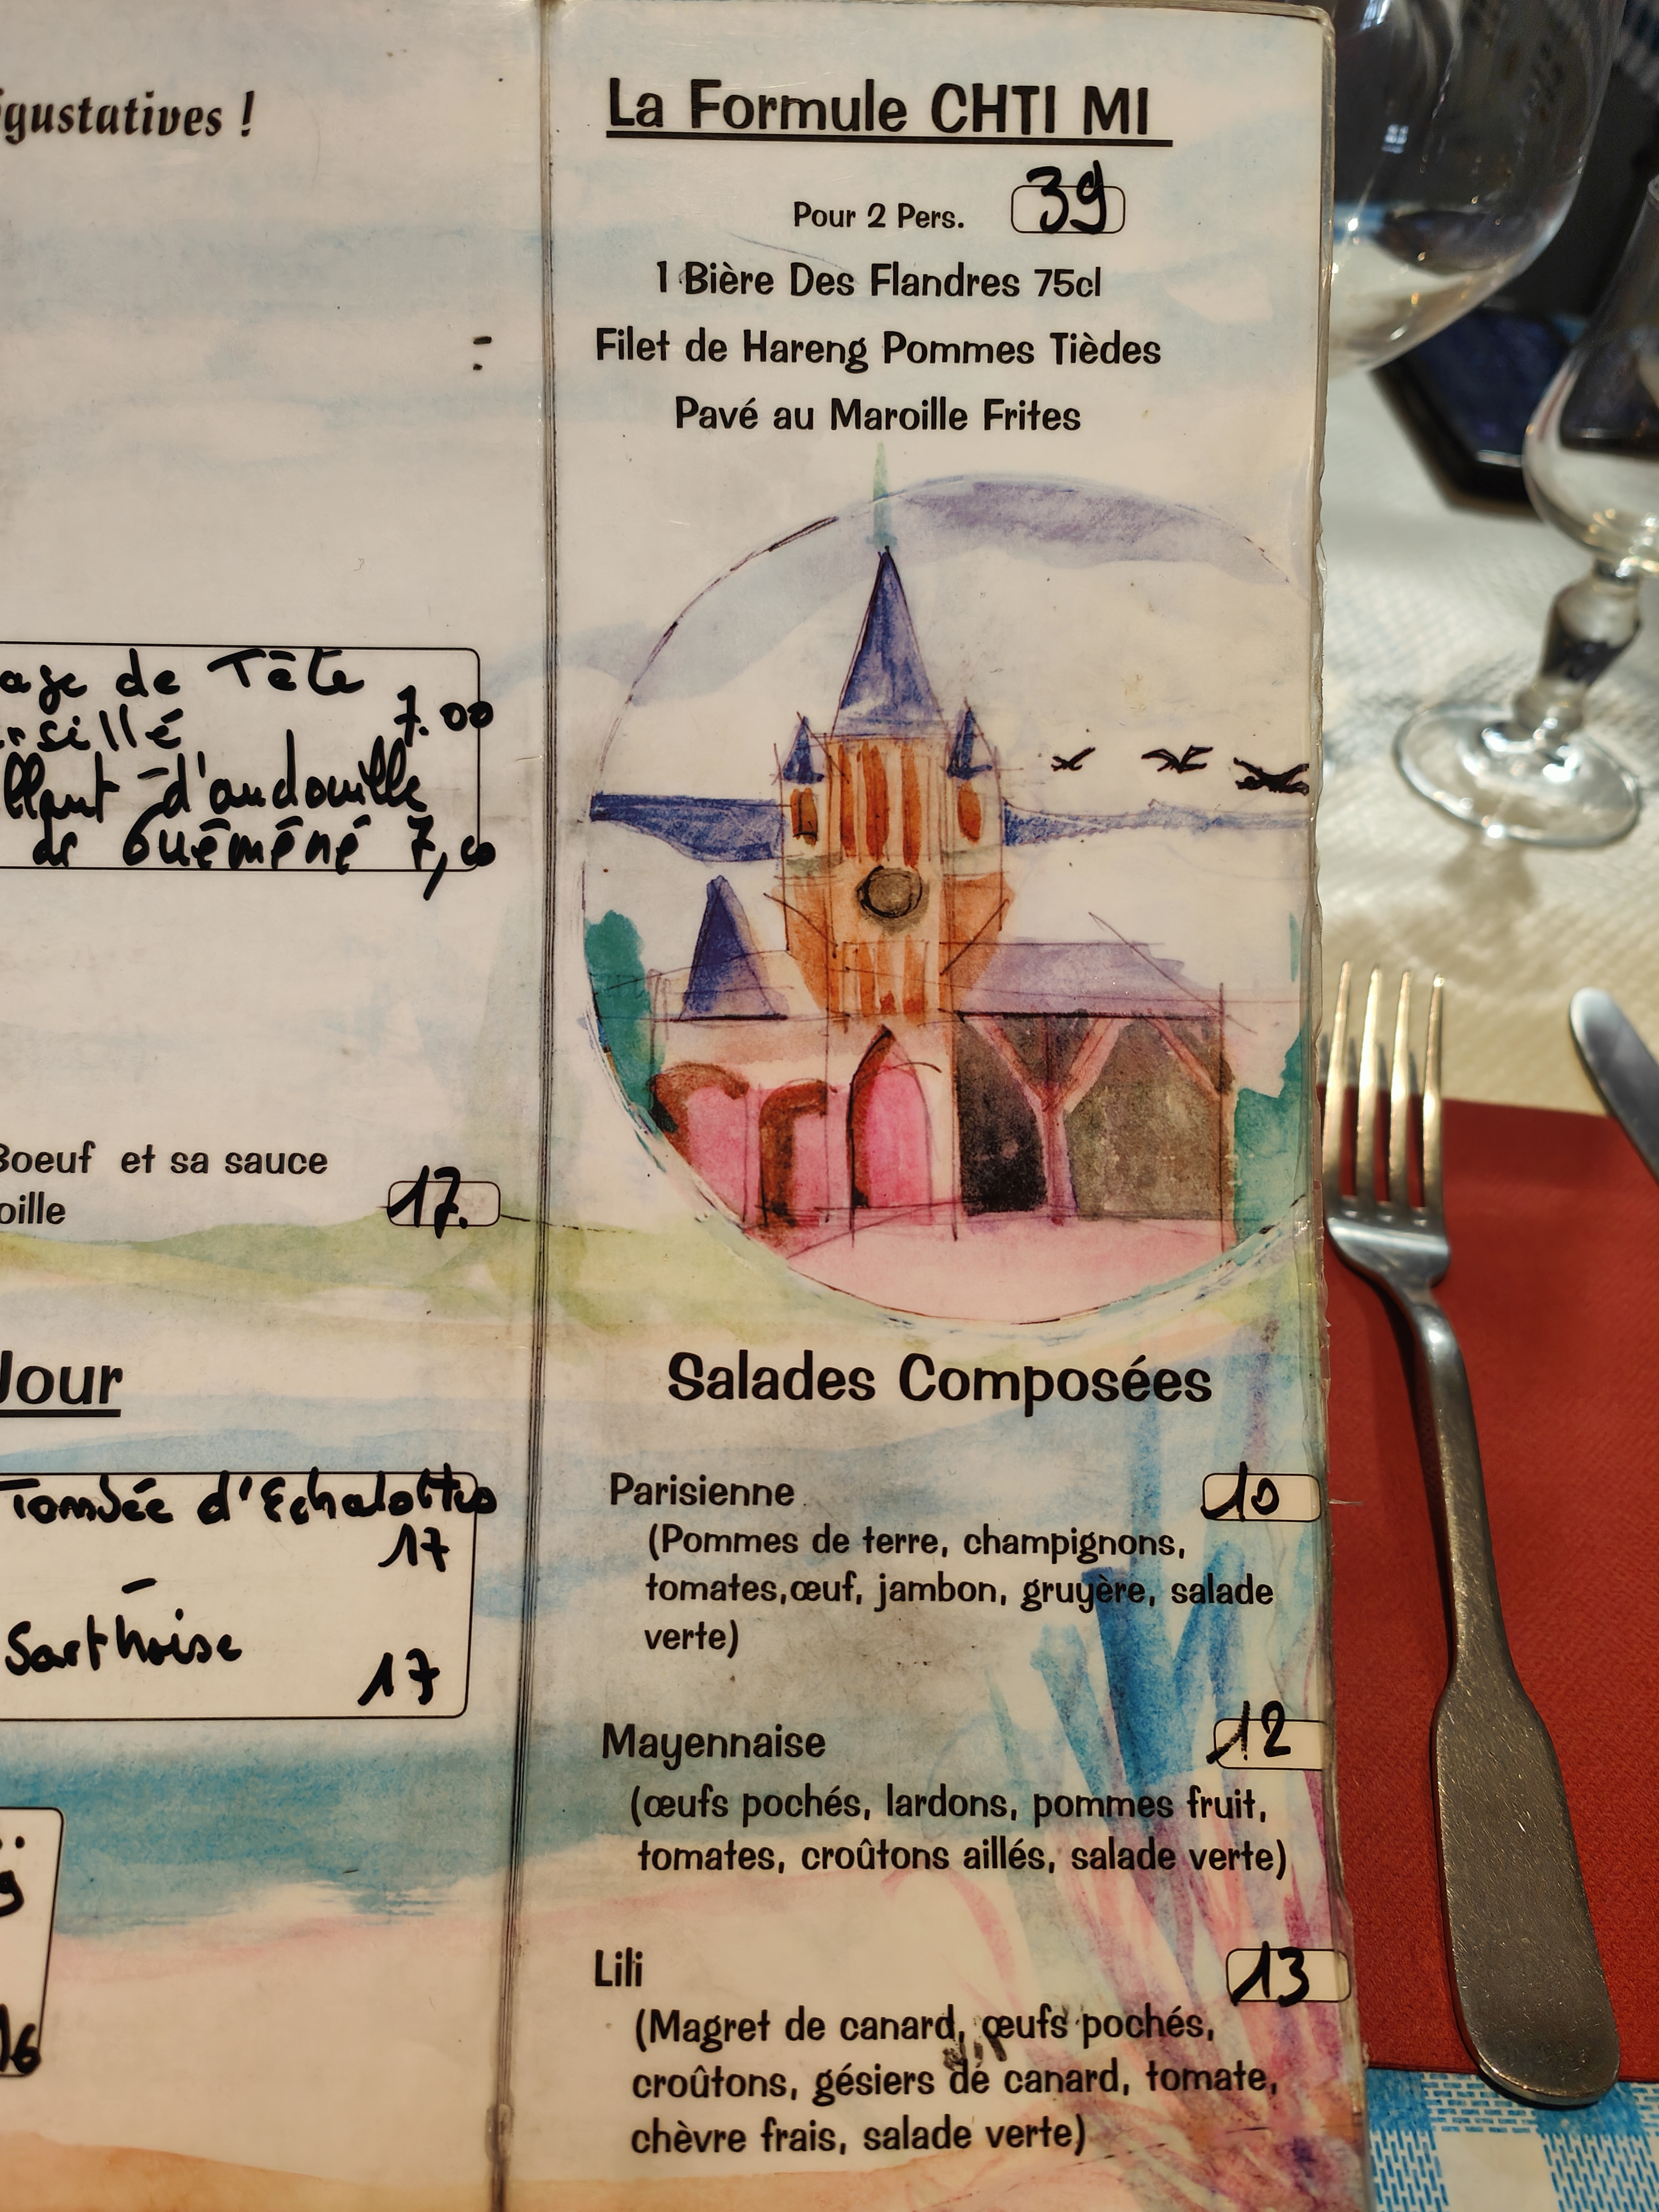 gustatives !
de Tête
7.00
d'andouille
de Guéméné 7,00
Boeuf et sa sauce
oille
17.
Jour
Tombée d'Echalottes
17
Sarthoise
17
16
La Formule CHTI MI
Pour 2 Pers. 39
1 Bière Des Flandres 75cl
Filet de Hareng Pommes Tièdes
Pavé au Maroille Frites
Salades Composées
Parisienne 10
(Pommes de terre, champignons,
tomates,œuf, jambon, gruyère, salade
verte)
Mayennaise 12
(œufs pochés, lardons, pommes fruit,
tomates, croûtons aillés, salade verte)
Lili 13
(Magret de canard, œufs pochés,
croûtons, gésiers de canard, tomate,
chèvre frais, salade verte)